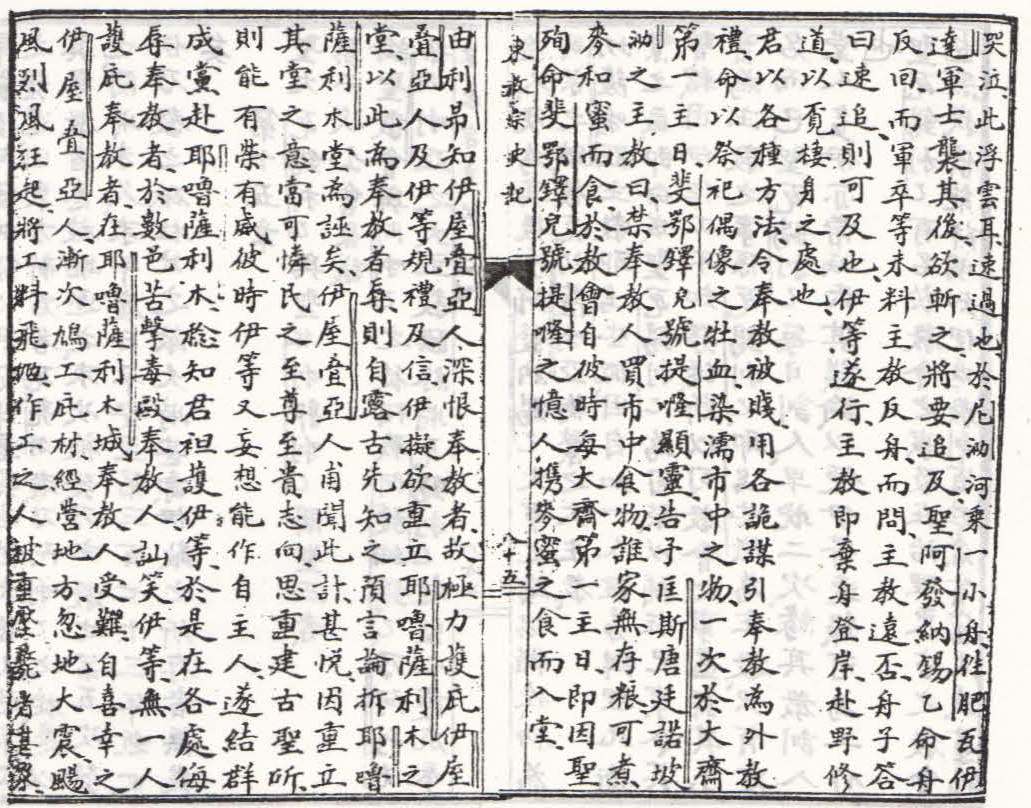 哭泣、此浮雲耳、速過也、於尼泑河乘一小舟、徃肥瓦伊
達軍士襲其後、欲斬之、將要追及、聖阿發納錫乙命舟
反囘、而軍卒等未料主教反身、而問、主教遠否、舟子答
曰、速追、則可及也、伊等遂行、主教即棄舟登岸、赴野修
道、以覓棲身之處也、
君以各種方法、令奉教被賤、用各詭謀引奉教為外教
禮、命以祭祀偶像之牡血、染濡市中之物、一次於大齋
第一主日、斐鄂鐸兒號提嘊顯靈、告于匡斯唐廷諾坡
泑之主教曰、禁奉教人買市中食物、誰家無存粮、可煮
麥和蜜而食、於教會自彼時每大齋第一主日、即因聖
殉命斐鄂鐸兒號提嘊之憶、人攜麥蜜之食而入堂、
東教宗史記
八十五
由利昂知伊屋疊亞人、深恨奉教者、故極力護庇伊屋
疊亞人及伊等規禮及信、伊擬欲重立耶嚕薩利木之
堂、以此為奉教者辱、則自露古先知之預言論拆耶嚕
薩利木堂為誣矣、伊屋疊亞人甫聞此計、甚悅、因重立
其堂之意、當可憐民之至尊至貴志向、思重建古聖所、
則能有榮有威、彼時伊等又妄想能作自主人、遂結群
成黨、赴耶嚕薩利木、稔知君袒護伊等、於是在各處侮
辱奉教者、於數邑苦擊毒毆奉教人、訕笑伊等、無一人
護庇奉教者、在耶嚕薩利木城、奉教人受難自喜幸之
伊屋疊亞人、漸次鳩工庀材、經營地方、忽地大震、颺
風烈風誑起、將工料飛拋、作工之人被重壓斃者甚眾